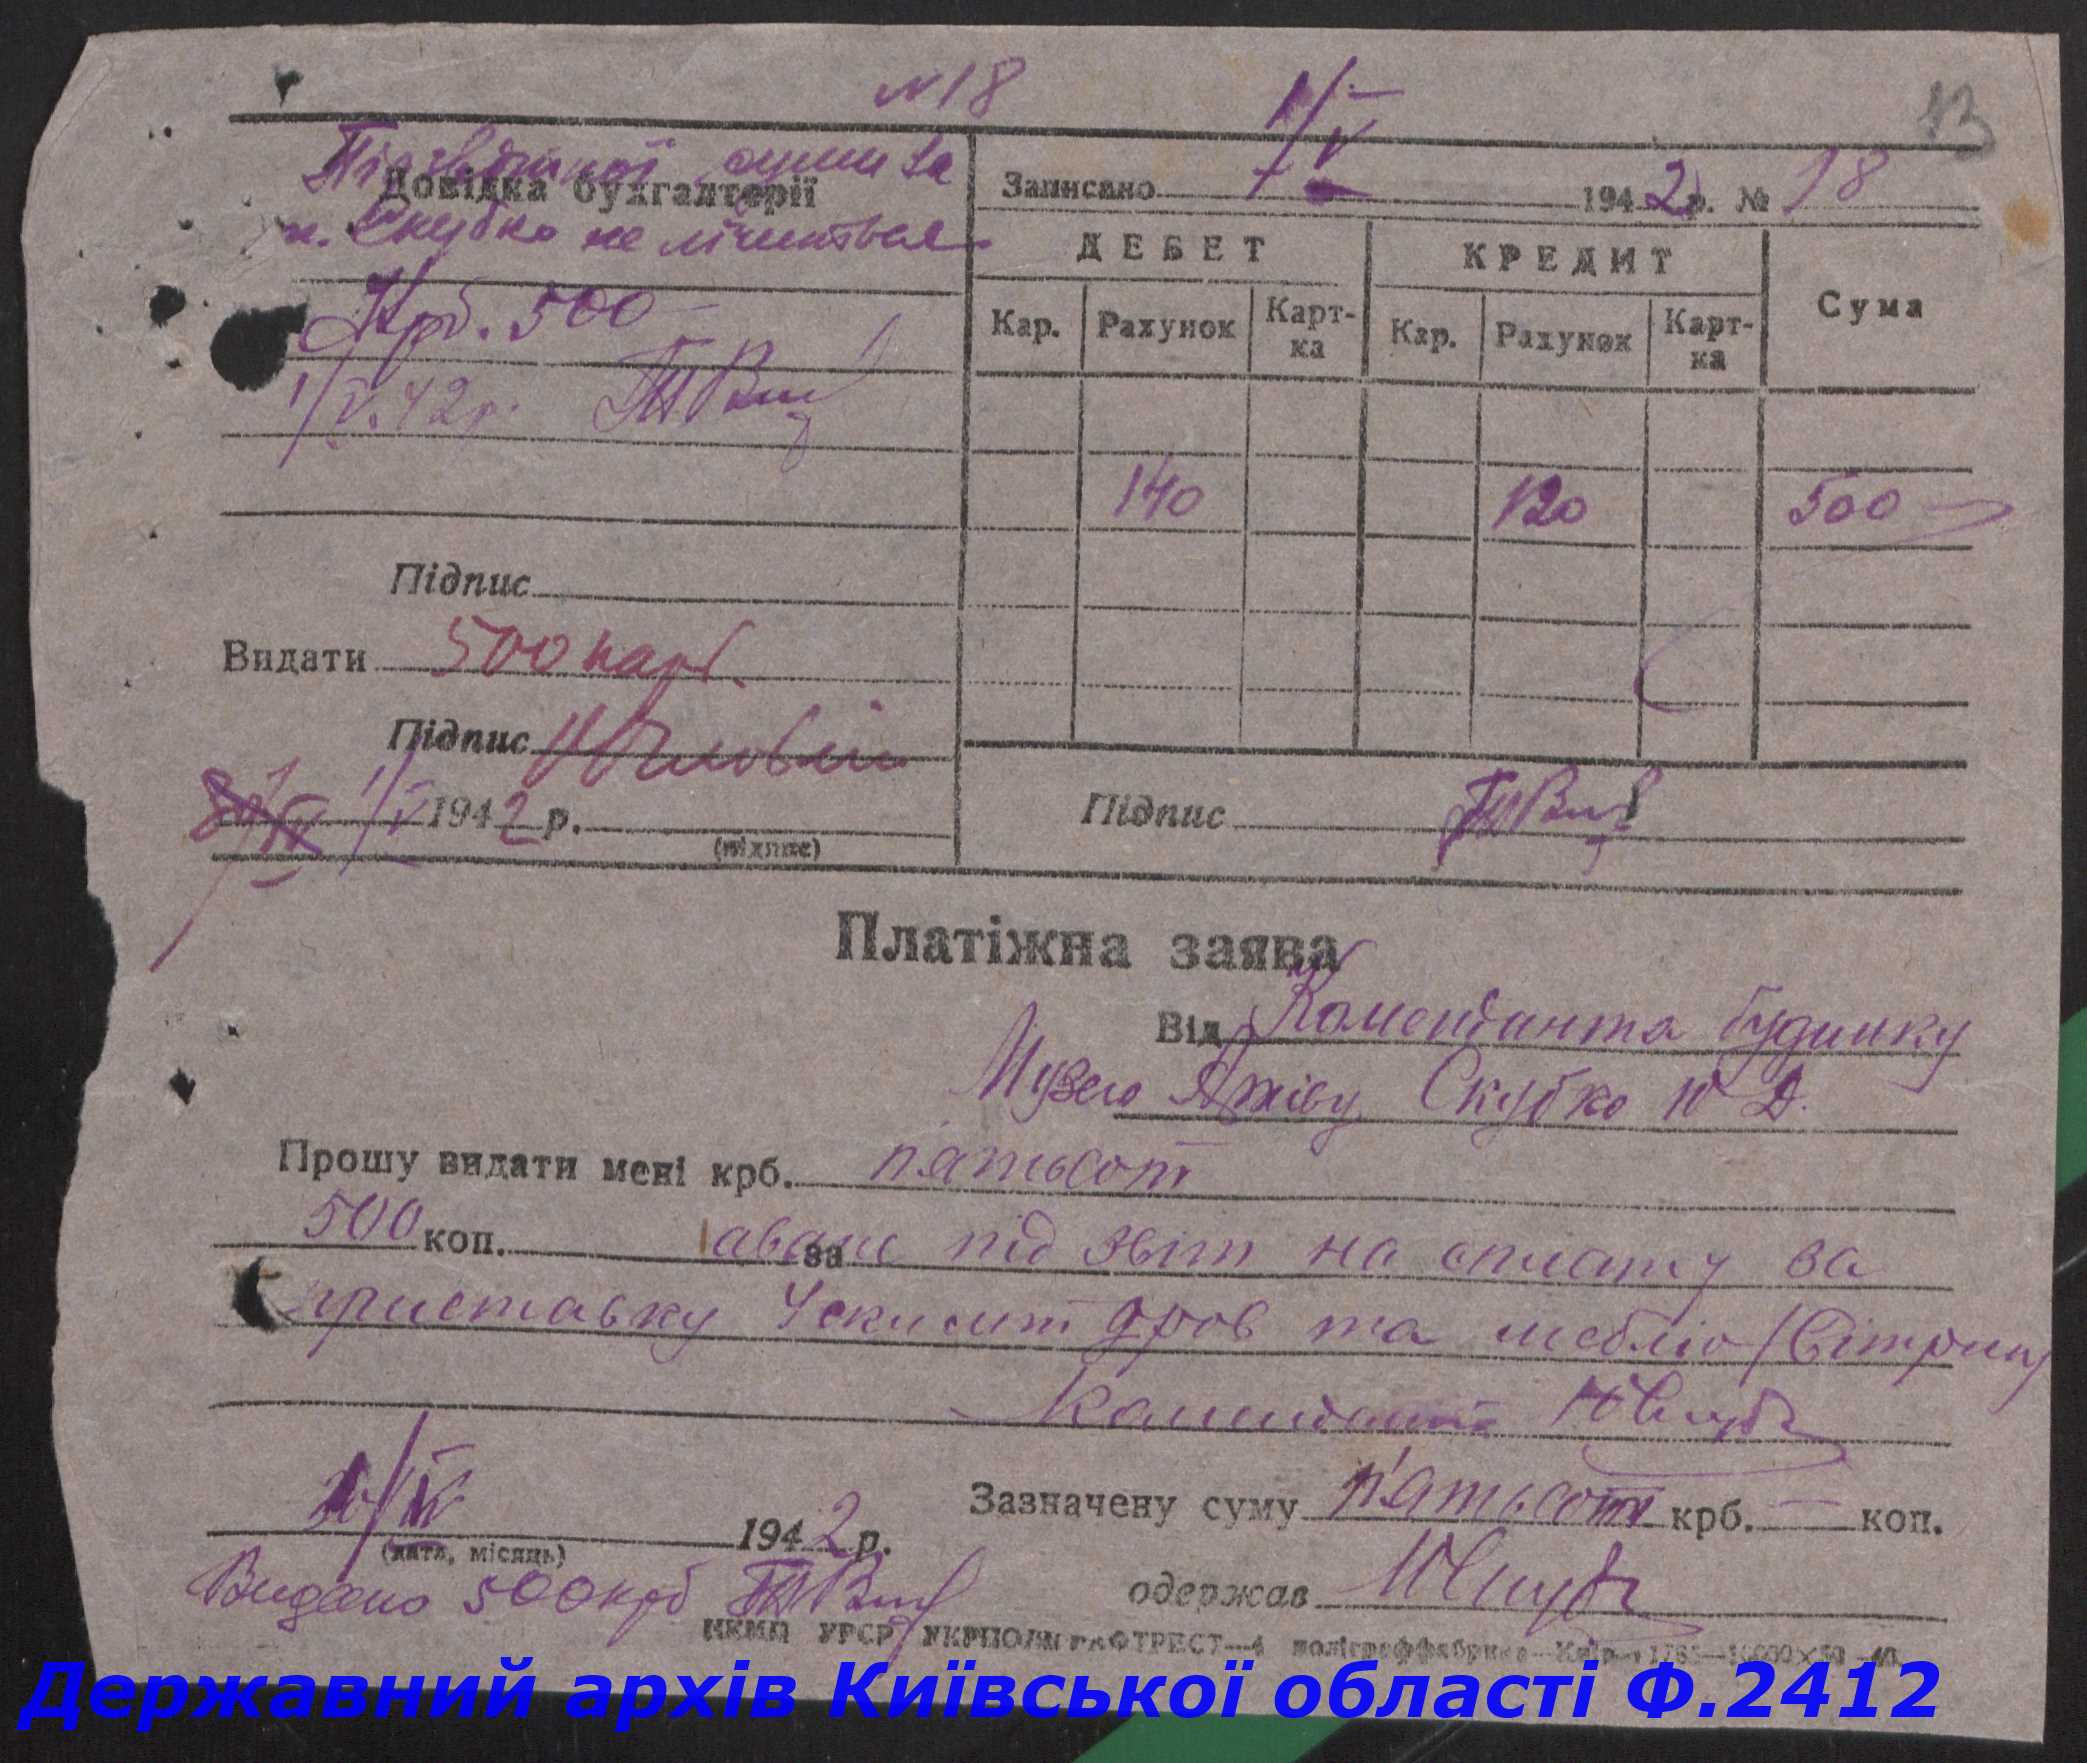 №18
1/V
13
Підзвітної суми за
Довідка бухгалтерії
п. Скубко не лічиться.
Крб. 500 –
1/V.42р.
Підпис
Видати 500 карб.
Підпис
1/V 1942 р.
(підпис)
Записано 1/V 1942 р. № 18
ДЕБЕТ КРЕДИТ Сума
Кар. Рахунок Карт-ка Кар. Рахунок Карт-ка
140 120 500 –
Підпис
Платіжна заява
Від Коменданта будинку
Музею Архіву Скубко Ю Д.
Прошу видати мені крб. п'ятьсот
500 коп. за аванс під звіт на оплату за
приставку дров та меблю (Вітрину
Комендант
1942 р.
(дата, місяць)
Зазначену суму п'ятьсот крб. — коп.
Видано 500 крб
одержав
НКМП УРСР УКРПОЛІГРАФТРЕСТ—4 поліграффабрика—Київ
Державний архів Київської області Ф.2412